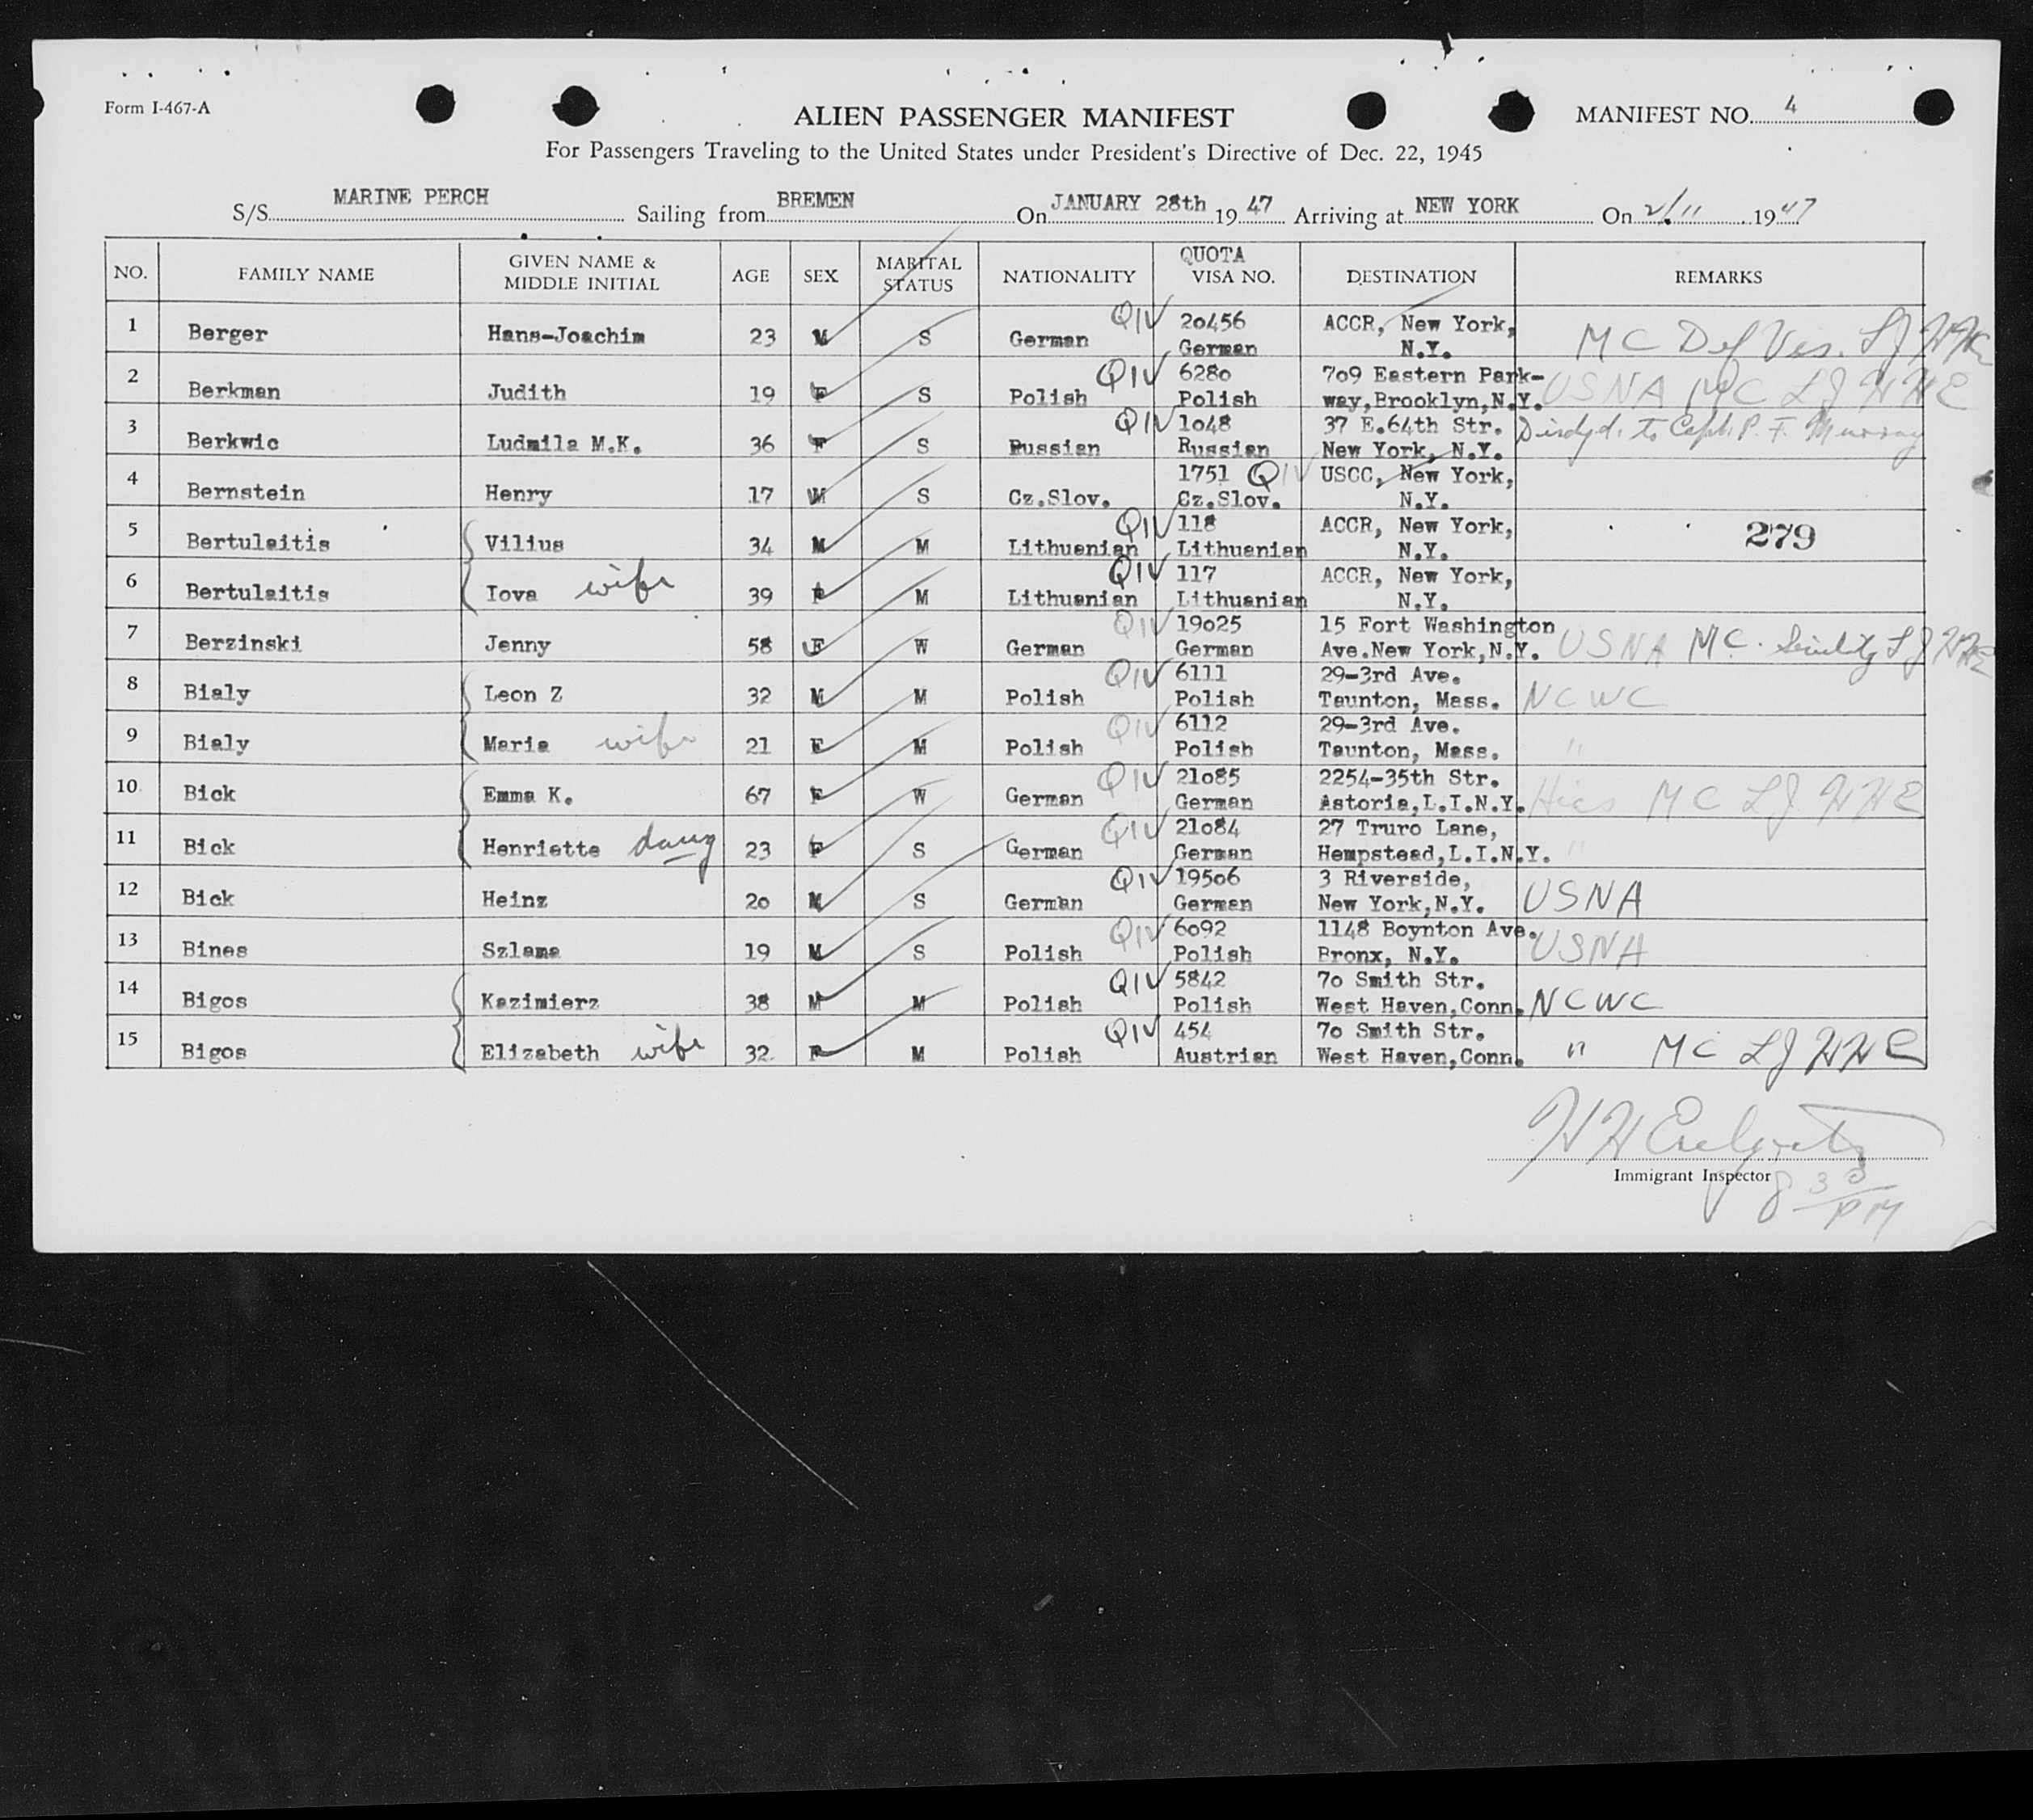 Form I-467-A
ALIEN PASSENGER MANIFEST
MANIFEST NO. 4
For Passengers Traveling to the United States under President's Directive of Dec. 22, 1945
S/S MARINE PERCH Sailing from BREMEN On JANUARY 28th 19 47 Arriving at NEW YORK On 2/11 1947
NO. FAMILY NAME GIVEN NAME & MIDDLE INITIAL AGE SEX MARITAL STATUS NATIONALITY QUOTA VISA NO. DESTINATION REMARKS
1 Berger Hans-Joachim 23 M S German QIV 20456 German ACCR, New York, N.Y. MC Def Vis. LJ HHE
2 Berkman Judith 19 F S Polish QIV 6280 Polish 709 Eastern Park-way,Brooklyn,N.Y. USNA MC LJ HHE
3 Berkwic Ludmila M.K. 36 F S Russian QIV 1048 Russian 37 E.64th Str. New York, N.Y. to Capt. P. F. Murray
4 Bernstein Henry 17 M S Cz.Slov. 1751 QIV Cz.Slov. USCC, New York, N.Y.
5 Bertulaitis Vilius 34 M M Lithuanian QIV 118 Lithuanian ACCR, New York, N.Y. 279
6 Bertulaitis Iova wife 39 F M Lithuanian QIV 117 Lithuanian ACCR, New York, N.Y.
7 Berzinski Jenny 58 F W German QIV 19025 German 15 Fort Washington Ave.New York,N.Y. USNA MC. Senility LJ HHE
8 Bialy Leon Z 32 M M Polish QIV 6111 Polish 29-3rd Ave. Taunton, Mass. NCWC
9 Bialy Maria wife 21 F M Polish QIV 6112 Polish 29-3rd Ave. Taunton, Mass. "
10 Bick Emma K. 67 F W German QIV 21085 German 2254-35th Str. Astoria,L.I.N.Y. Hias MC LJ HHE
11 Bick Henriette daug 23 F S German QIV 21084 German 27 Truro Lane, Hempstead,L.I.N.Y. "
12 Bick Heinz 20 M S German QIV 19506 German 3 Riverside, New York,N.Y. USNA
13 Bines Szlama 19 M S Polish QIV 6092 Polish 1148 Boynton Ave. Bronx, N.Y. USNA
14 Bigos Kazimierz 38 M M Polish QIV 5842 Polish 70 Smith Str. West Haven,Conn. NCWC
15 Bigos Elizabeth wife 32 F M Polish QIV 454 Austrian 70 Smith Str. West Haven,Conn. " MC LJ HHE
Immigrant Inspector
8 30 PM